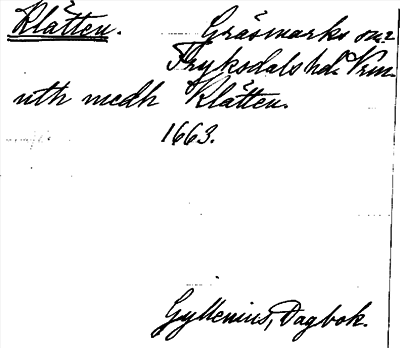 Klätten. Gräsmarks sn
Fryksdals hd. Vrm.
uth medh Klätten.
1663.
Gyllenius, Dagbok.